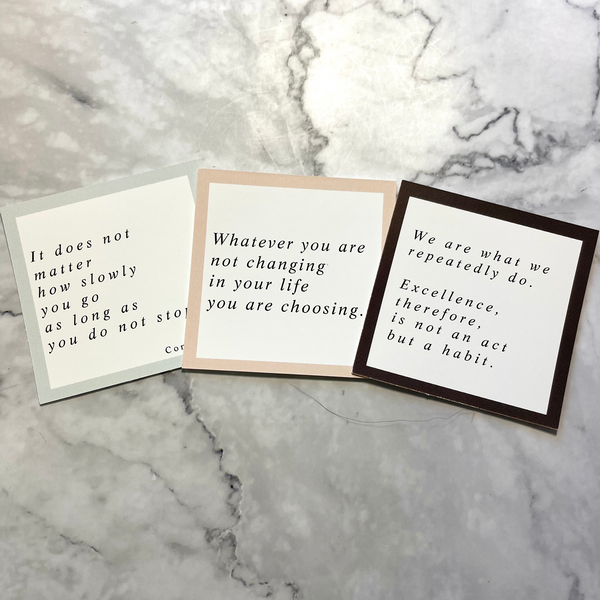 It does not
matter
how slowly
you go
as long as
you do not stop
Whatever you are
not changing
in your life
you are choosing.
We are what we
repeatedly do.
Excellence,
therefore,
is not an act
but a habit.